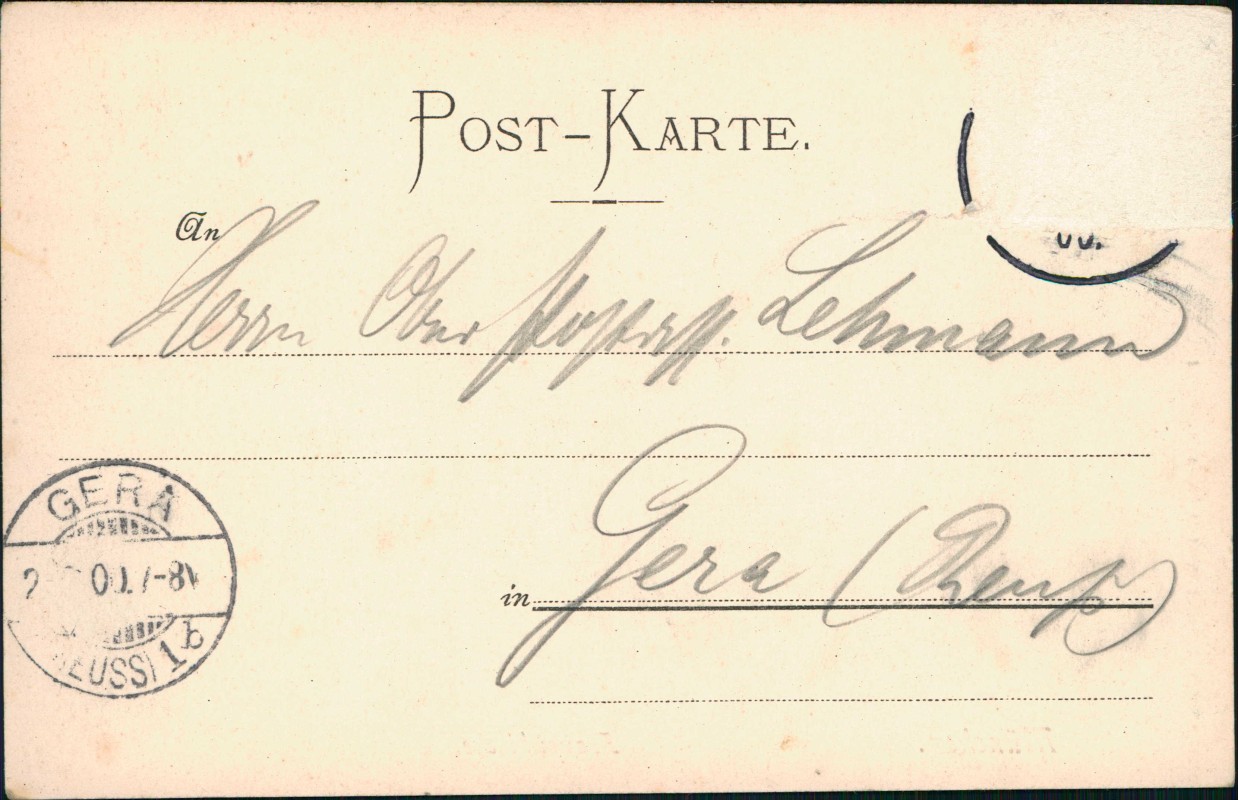 POST-KARTE.
An
Herrn Ober Postass. Lehmann
GERA
2 00. 7-8V
(REUSS) 1b
in Gera (Reuß)
00.